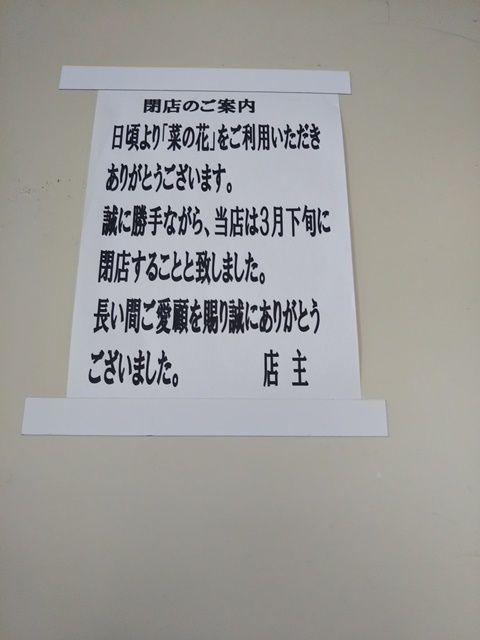 閉店のご案内
日頃より「菜の花」をご利用いただき
ありがとうございます。
誠に勝手ながら、当店は3月下旬に
閉店することと致しました。
長い間ご愛顧を賜り誠にありがとう
ございました。 店 主